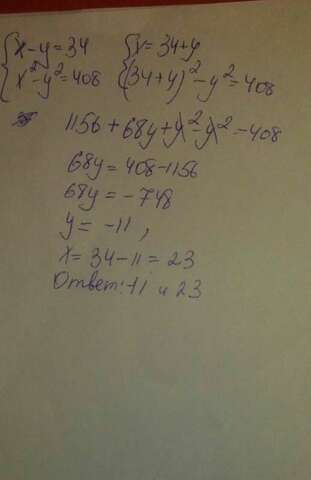 {x-y=34 {x=34+y
{x²-y²=408 {(34+y)²-y²=408
1156+68y+y²-y²=408
68y=408-1156
68y=-748
y=-11,
x=34-11=23
Ответ:-11 и 23